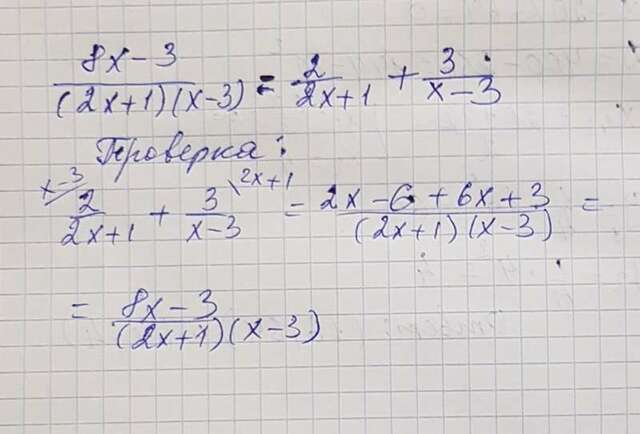 (8x-3)/((2x+1)(x-3)) = 2/(2x+1) + 3/(x-3)
Проверка:
x-3/ 2/(2x+1) + 3/(x-3) \2x+1 = (2x-6+6x+3)/((2x+1)(x-3)) =
= (8x-3)/((2x+1)(x-3))